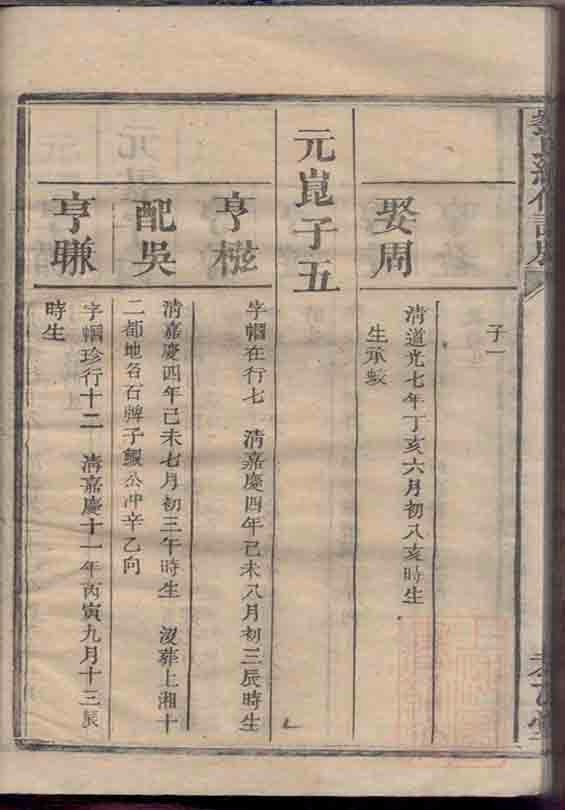 子一
娶周
清道光七年丁亥六月初八亥時生
生承蛟
元崑子五
亨樾
字幗在行七 清嘉慶四年己未八月初三辰時生
配吳
清嘉慶四年己未七月初三午時生 沒葬上湘十
二都地名石牌子鰕公冲辛乙向
亨賺
字幗珍行十二 清嘉慶十一年丙寅九月十三辰
時生